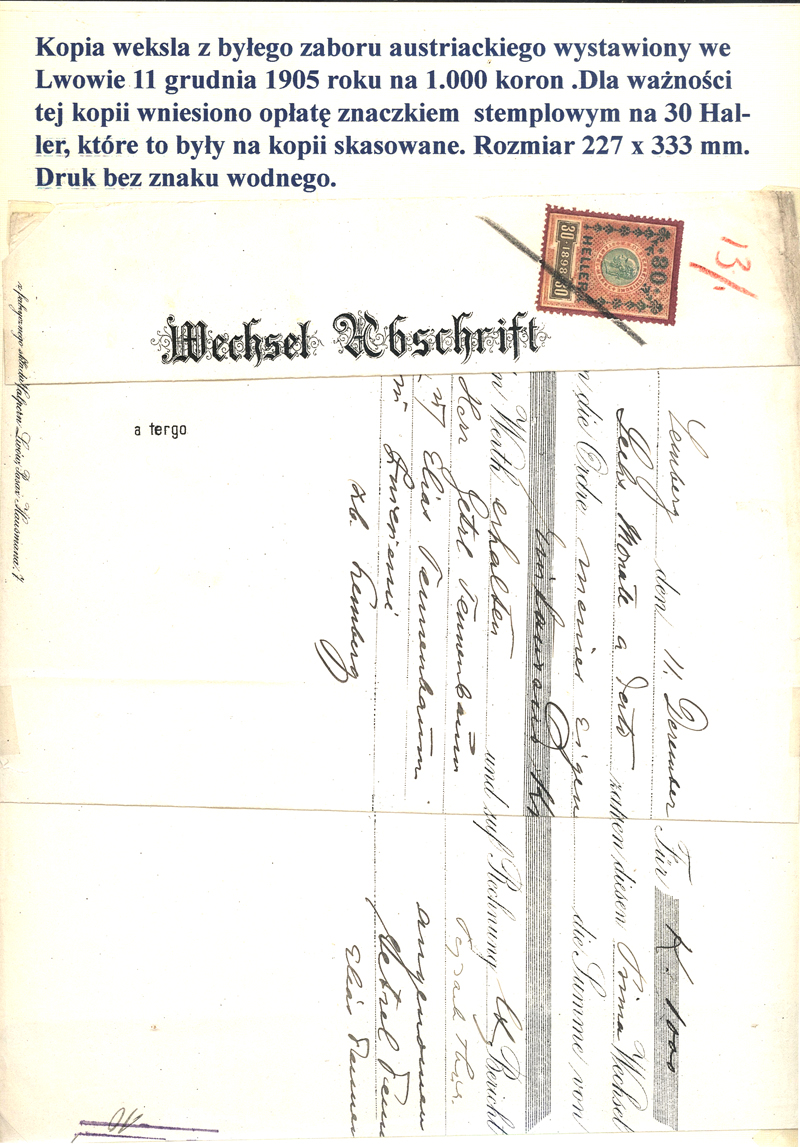 Kopia weksla z byłego zaboru austriackiego wystawiony we
Lwowie 11 grudnia 1905 roku na 1.000 koron .Dla ważności
tej kopii wniesiono opłatę znaczkiem stemplowym na 30 Hal-
ler, które to były na kopii skasowane. Rozmiar 227 x 333 mm.
Druk bez znaku wodnego.
30 · 1898 · 30
HELLER
· 30 ·
13/1
Wechsel Abschrift
a tergo
Lemberg den 11. Dezember Für K. 1000
Sechs Monate a dato zahlen diesen Prima Wechsel
n die Ordre meiner eigene die Summe von
Eintausend Kr
n Werth erhalten und auf Rechnung Bericht
Herr Getzl Tennenbaum
Elias Tennenbaum
angenomen
zb. Lemberg
Getzel Tenn
Elias Tennen